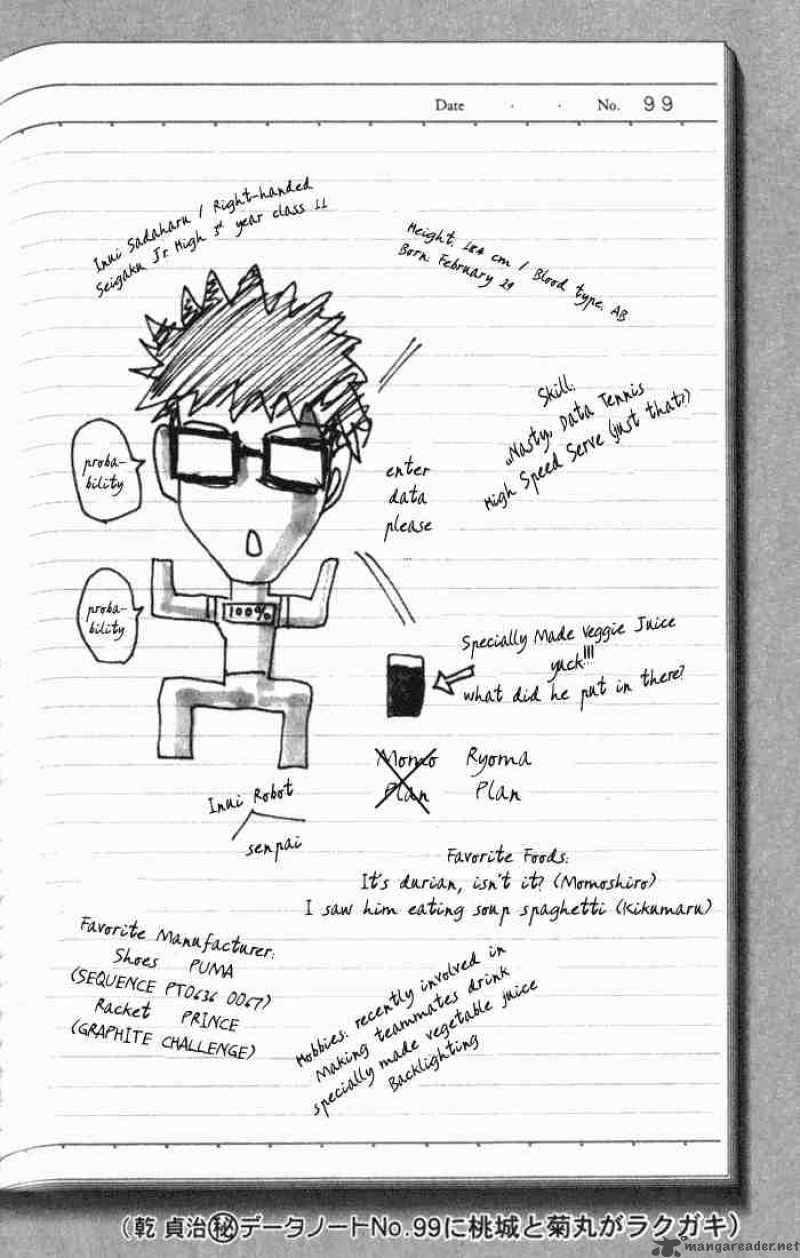 Date . . No. 99
Inui Sadaharu / Right-handed
Seigaku Jr. High 3rd year class 11
Height: 184 cm / Blood type: AB
Born: February 29
Skill:
"Nasty" Data Tennis
High Speed Serve (just that?)
proba-
bility
enter
data
please
proba-
bility
100%
Specially Made Veggie Juice
yuck!!!
what did he put in there?
Momo Ryoma
Plan Plan
Inui Robot
senpai
Favorite Foods:
It's durian, isn't it? (Momoshiro)
I saw him eating soup spaghetti (Kikumaru)
Favorite Manufacturer:
Shoes PUMA
(SEQUENCE PT0636 0067)
Racket PRINCE
(GRAPHITE CHALLENGE)
Hobbies: recently involved in
Making teammates drink
specially made vegetable juice
Backlighting
(乾 貞治㊙データノートNo.99に桃城と菊丸がラクガキ)
mangareader.net